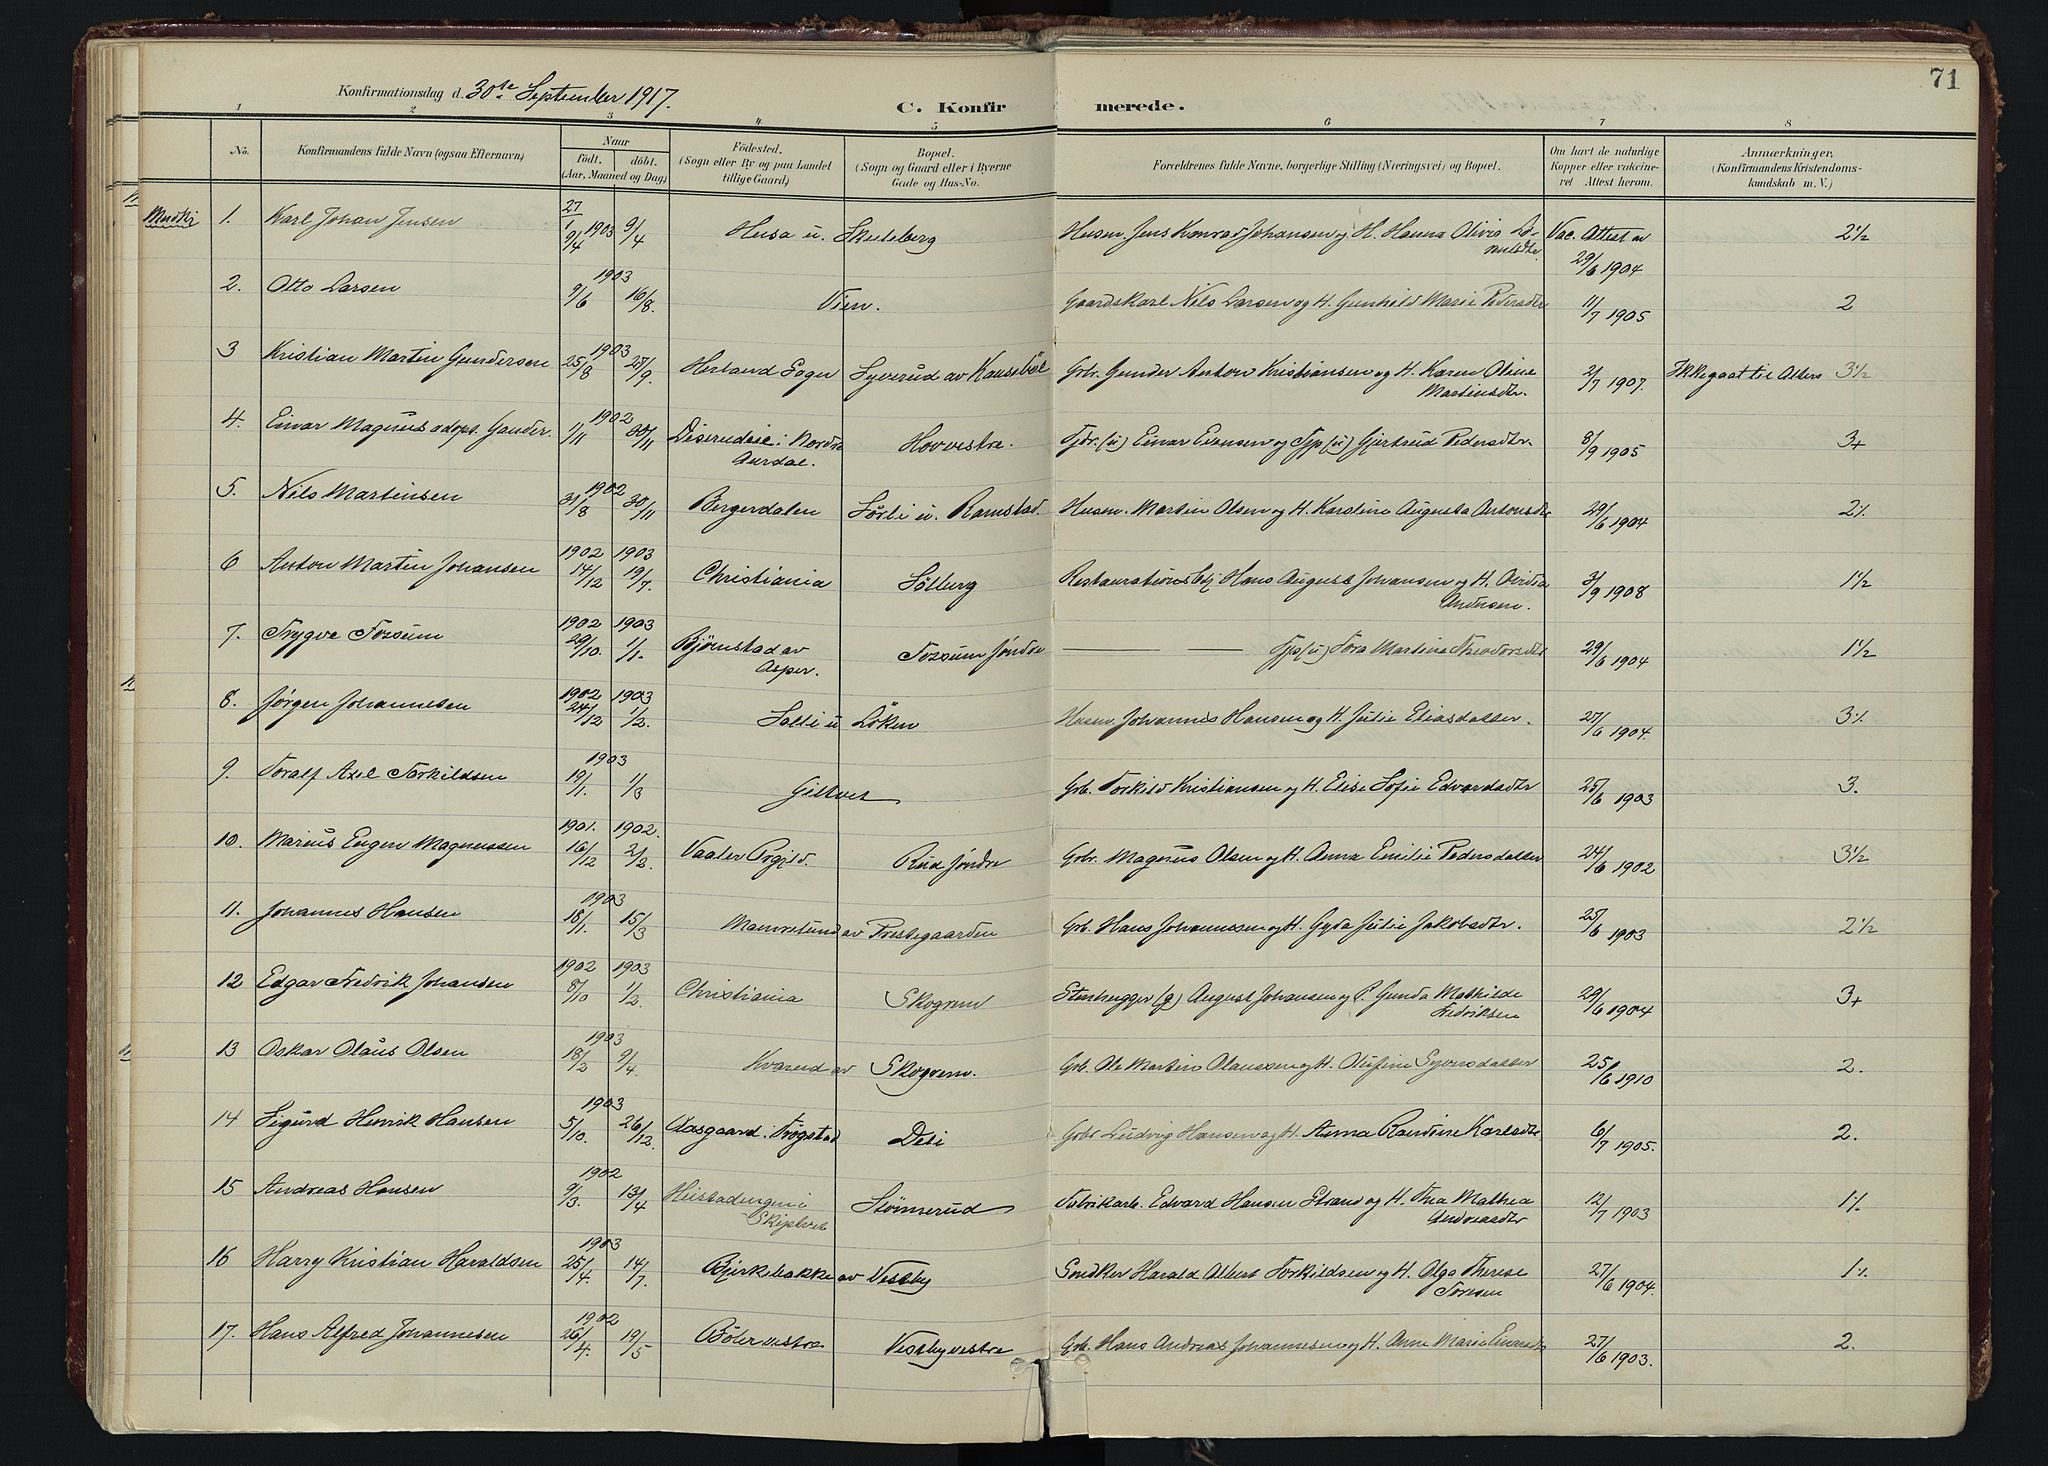 71
Konfirmationsdag d. 30te September 1917.
C. Konfirmerede.
1 2 3 4 5 6 7 8
No. Konfirmandens fulde Navn (ogsaa Efternavn) Naar Födested. Bopæl. Forældrenes fulde Navne, borgerlige Stilling (Næringsvei) og Bopæl. Om havt de naturlige Anmærkninger,
födt. döbt. (Sogn eller By og paa Landet (Sogn og Gaard eller i Byerne Kopper eller vakcine- (Konfirmandens Kristendoms-
(Aar, Maaned og Dag) tillige Gaard) Gade og Hus-No. ret Attest herom. kundskab m. V.)
1. Karl Johan Jensen 27/1 1903 9/4 Husa u. Skuleberg Husm. Jens Konrad Johansen og H. Hanna Olivia Vac. Attest av 29/6 1904 2 1/2
2. Otto Larsen 1903 9/6 16/8. Vien. Gaardskarl Nils Larsen og H. Gunhild Marie Pedersdtr 11/7 1905 2
3 Kristian Martin Gundersen 1903 25/8 27/9. Herland Sogn Syverud av Gbr. Gunder Anton Kristiansen og H. Karen Oline Martinsdtr. 2/7 1907. Ikke gaat til Alters 3 1/2
4. Einar Magnus adopt. Gunder. 1902 1/11 30/11 i Nordre Aurdal. Hovvestre. Einar Evensen og (u) Gjertrud Pedersdtr. 8/9 1905 3+
5. Nils Martinsen 1902 31/8 30/11 Bergerdalen Sörli u. Ramstad. Husm. Martin Olsen og H. Karoline Augusta Antonsdtr 29/6 1904 2 1/.
6 Anton Martin Johansen 1902 14/12 1903 19/7. Christiania Solberg Restaurations Hans August Johansen og H. Andersen. 3/9 1908 1 1/2
7. Trygve Fossum 1902 29/10. 1903 1/1. Bjørnstad av Asper. Fossum søndre Tora Martine Theodorsdtr 29/6 1904 1 1/2
8. Jørgen Johannesen 1902 24/12 1903 1/2. u Löken Husm. Johannes Hansen og H. Julie Eliasdatter. 27/6 1904. 3 1/.
9. Toralf Axel Torkildsen 1903 19/1. 1/3 Giltvet Gbr. Torkild Kristiansen og H. Elise Sofie Edvardsdtr 25/6 1903 3.
10. Marius Eugen Magnussen 1901. 16/12 1902. 2/2. Vaaler Prgjld. Rud søndre Gbr. Magnus Olsen og H. Anna Emilie Pedersdatter 24/6 1902 3 1/2
11. Johannes Hansen 1903 18/1. 15/3 av Prestegaarden Gbr. Hans Johannssen og H. Gyda Julie Jakobsdtr. 25/6 1903 2 1/2
12 Edgar Fredrik Johansen 1902 8/10 1903 1/2. Christiania Skogrem Stenhugger August Johansen og P. Gunda Mathilde Fredriksen 29/6 1904 3+
13 Oskar Olaus Olsen 1903 18/2 9/4. av Skogrem. Gbr. Ole Martin Olaussen og H. Olufine Syversdatter 25/6 1910 2.
14 Sigurd Henrik Hansen 1903 5/10. 26/12. Aasgaard i Trøgstad Deli Gbr Ludvig Hansen og H. Anna Randine Karlsdtr 6/7 1905. 2.
15 Andreas Hansen 1902 9/3. 13/4 Skiptvet Stömnerud Fabrikarb. Edvard Hansen Strand og H. Thea Mathea Andreasdtr 12/7 1903 1 1/.
16 Harry Kristian Haraldsen 1903 25/4. 14/7. Bjirkebakke av Vestby Harald Albert Torkildsen og H. Olga Therese Toresen 27/6 1904. 1 1/.
17. Hans Alfred Johannesen 1902 26/4. 19/5 Böler vestre Vestby vestre Gbr. Hans Andreas Johannesen og H. Anne Marie 27/6 1903. 2.